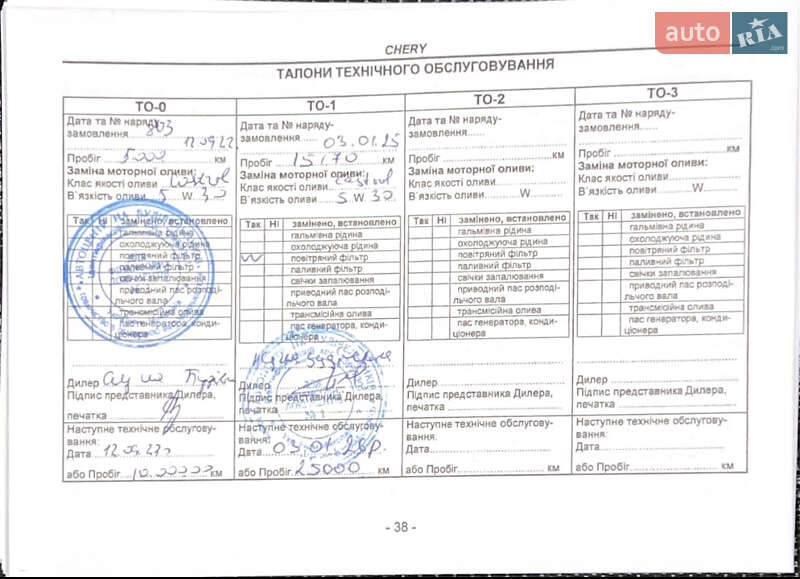 auto RIA
.com
CHERY
ТАЛОНИ ТЕХНІЧНОГО ОБСЛУГОВУВАННЯ
ТО-0
Дата та № наряду-
замовлення 803
12.09.22
Пробіг 5000 км
Заміна моторної оливи:
Клас якості оливи
В`язкість оливи 5 W 30
Так Ні замінено, встановлено
гальмівна рідина
охолоджуюча рідина
повітряний фільтр
паливний фільтр
свічки запалювання
приводний пас розподі-
льчого вала
трансмісійна олива
пас генератора, конди-
ціонера
Дилер
Підпис представника Дилера,
печатка
Наступне технічне обслугову-
вання:
Дата 12.09.23
або Пробіг км
ТО-1
Дата та № наряду-
замовлення
03.01.25
Пробіг 15170 км
Заміна моторної оливи:
Клас якості оливи castrol
В`язкість оливи 5 W 30
Так Ні замінено, встановлено
гальмівна рідина
охолоджуюча рідина
V повітряний фільтр
паливний фільтр
свічки запалювання
приводний пас розподі-
льчого вала
трансмісійна олива
пас генератора, конди-
ціонера
Дилер
Підпис представника Дилера,
печатка
Наступне технічне обслугову-
вання:
Дата 03.01.26р.
або Пробіг 25000 км
ТО-2
Дата та № наряду-
замовлення
Пробіг км
Заміна моторної оливи:
Клас якості оливи
В`язкість оливи W
Так Ні замінено, встановлено
гальмівна рідина
охолоджуюча рідина
повітряний фільтр
паливний фільтр
свічки запалювання
приводний пас розподі-
льчого вала
трансмісійна олива
пас генератора, конди-
ціонера
Дилер
Підпис представника Дилера,
печатка
Наступне технічне обслугову-
вання:
Дата
або Пробіг км
ТО-3
Дата та № наряду-
замовлення
Пробіг км
Заміна моторної оливи:
Клас якості оливи
В`язкість оливи W
Так Ні замінено, встановлено
гальмівна рідина
охолоджуюча рідина
повітряний фільтр
паливний фільтр
свічки запалювання
приводний пас розподі-
льчого вала
трансмісійна олива
пас генератора, конди-
ціонера
Дилер
Підпис представника Дилера,
печатка
Наступне технічне обслугову-
вання:
Дата
або Пробіг км
- 38 -